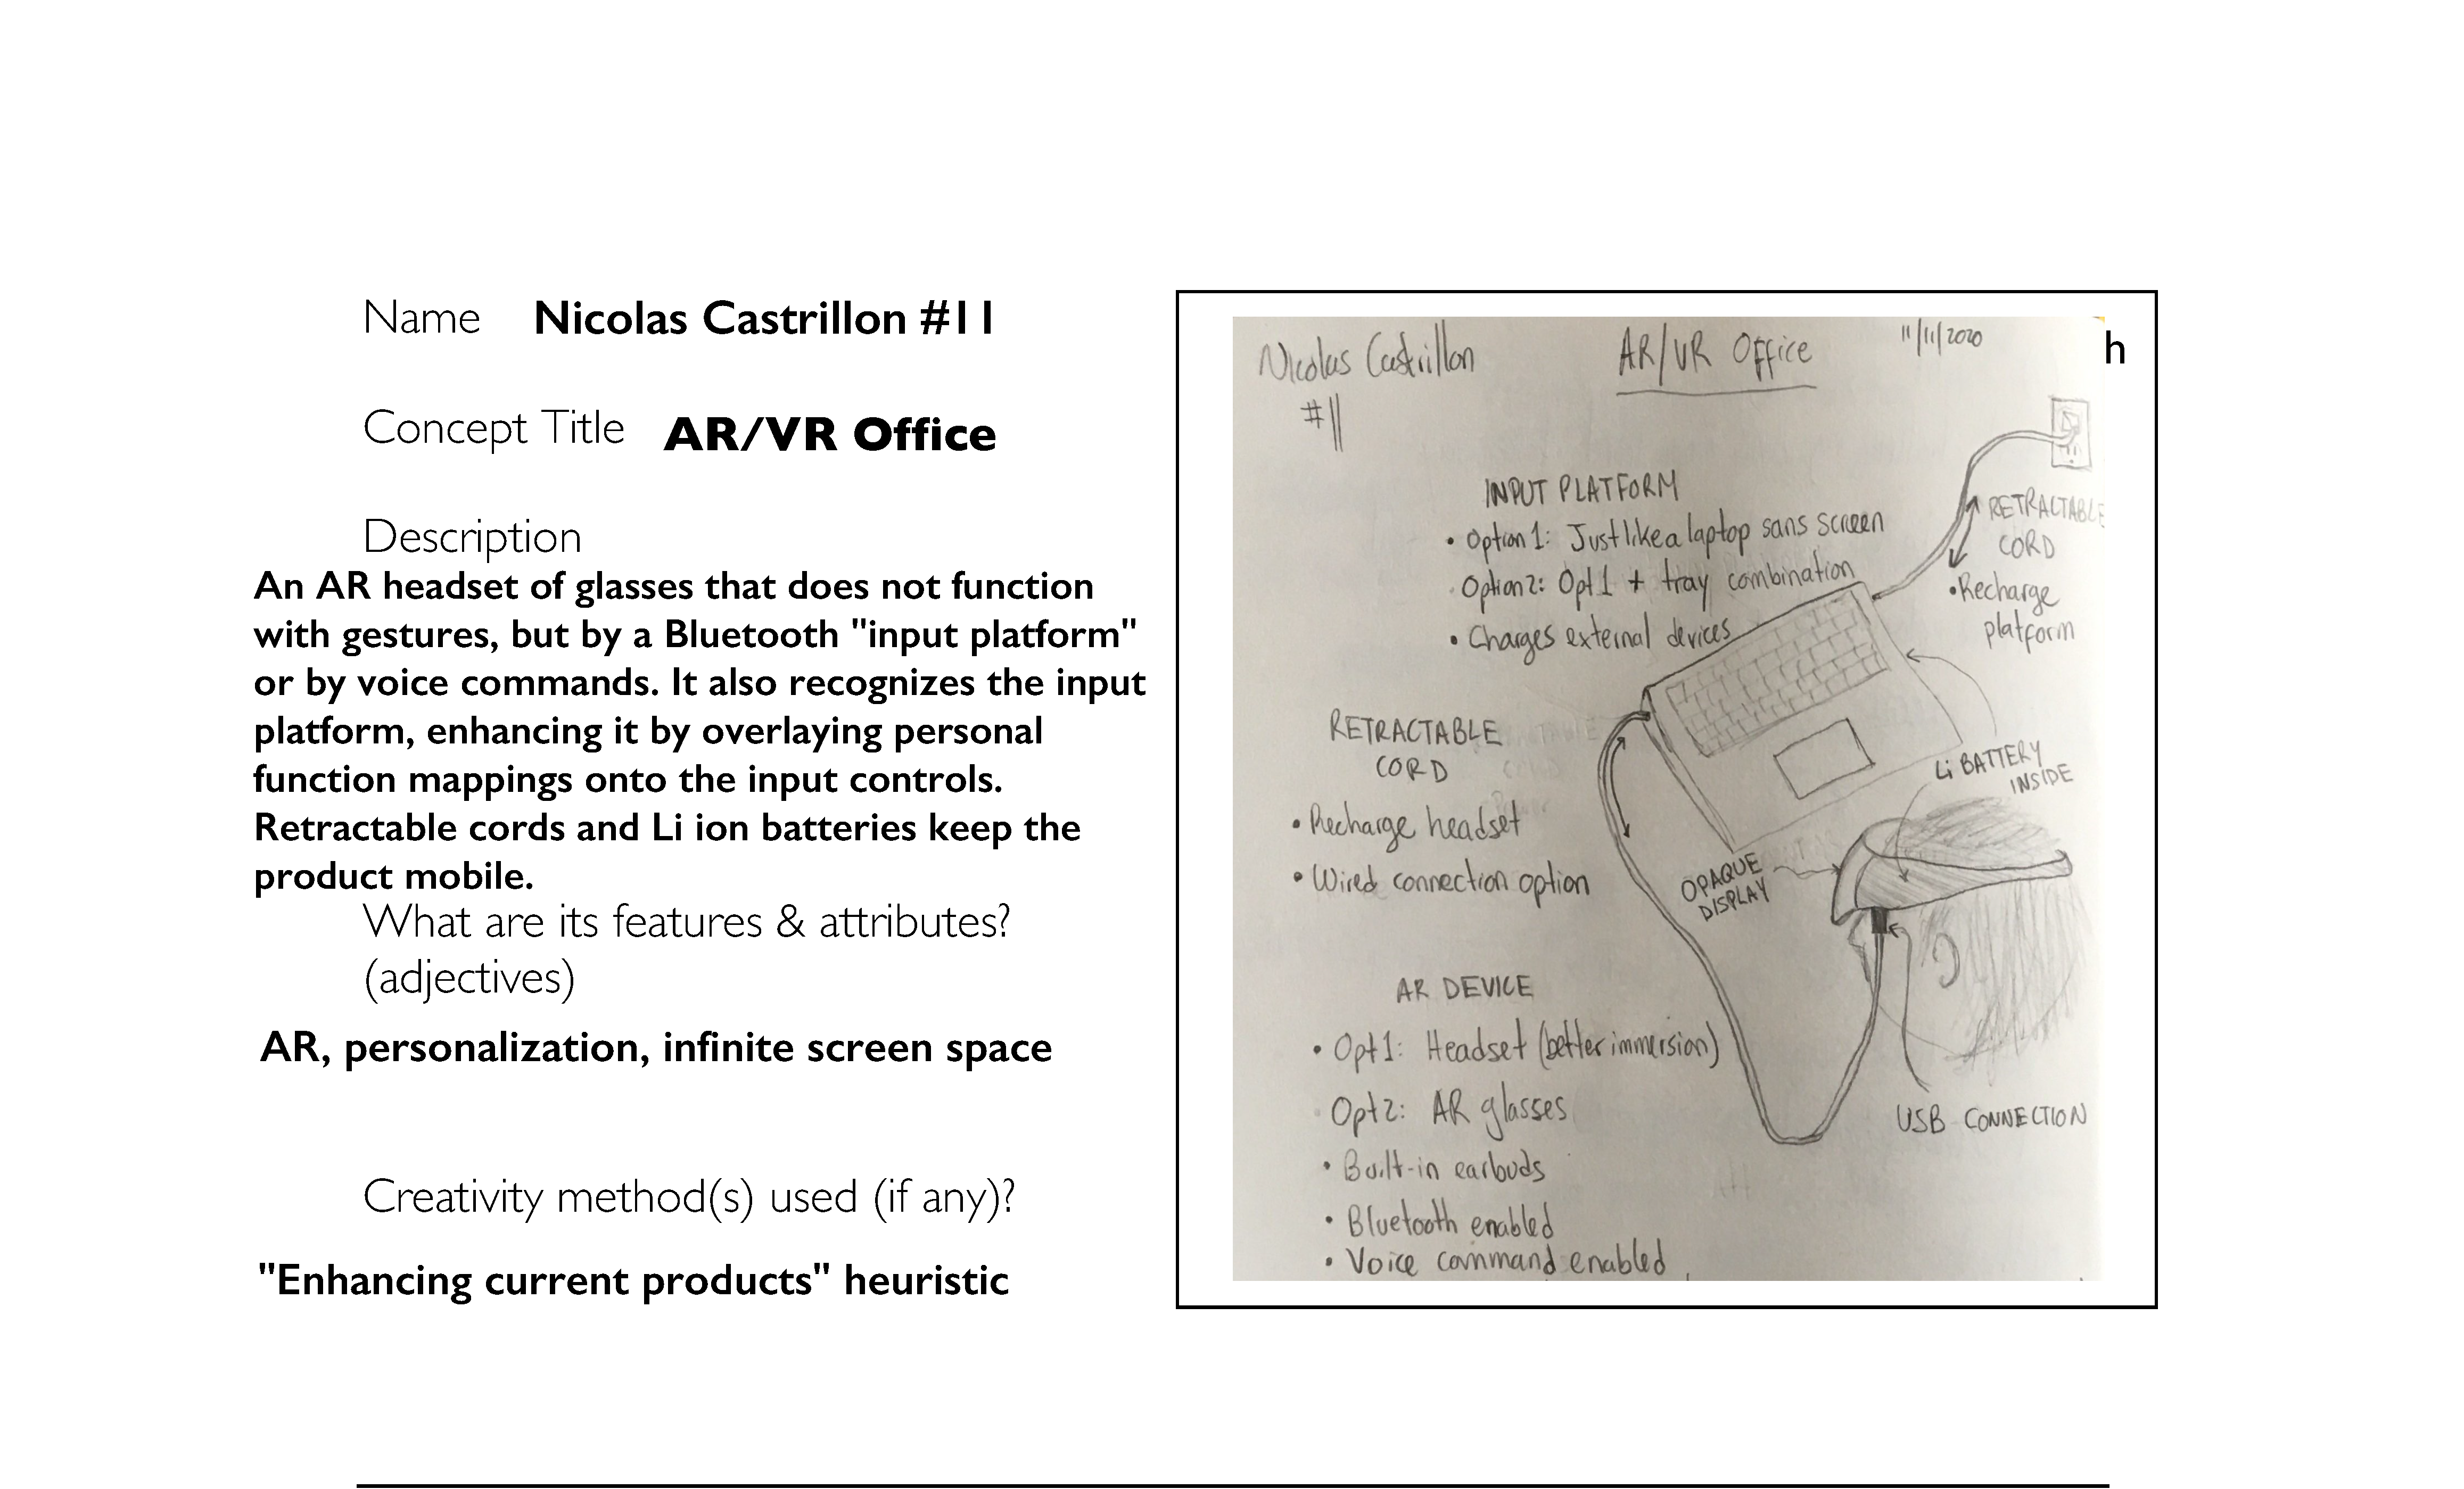 Name Nicolas Castrillon #11
Concept Title AR/VR Office
Description
An AR headset of glasses that does not function
with gestures, but by a Bluetooth "input platform"
or by voice commands. It also recognizes the input
platform, enhancing it by overlaying personal
function mappings onto the input controls.
Retractable cords and Li ion batteries keep the
product mobile.
What are its features & attributes?
(adjectives)
AR, personalization, infinite screen space
Creativity method(s) used (if any)?
"Enhancing current products" heuristic
h
Nicolas Castrillon
#11
AR/VR Office
11/11/2020
INPUT PLATFORM
• Option 1: Just like a laptop sans screen
Option 2: Opt 1 + tray combination
• Charges external devices
RETRACTABLE
CORD
• Recharge
platform
RETRACTABLE
CORD
• Recharge headset
• Wired connection option
Li BATTERY
INSIDE
OPAQUE
DISPLAY
AR DEVICE
• Opt 1: Headset (better immersion)
Opt 2: AR glasses
• Built-in earbuds
• Bluetooth enabled
• Voice command enabled
USB CONNECTION